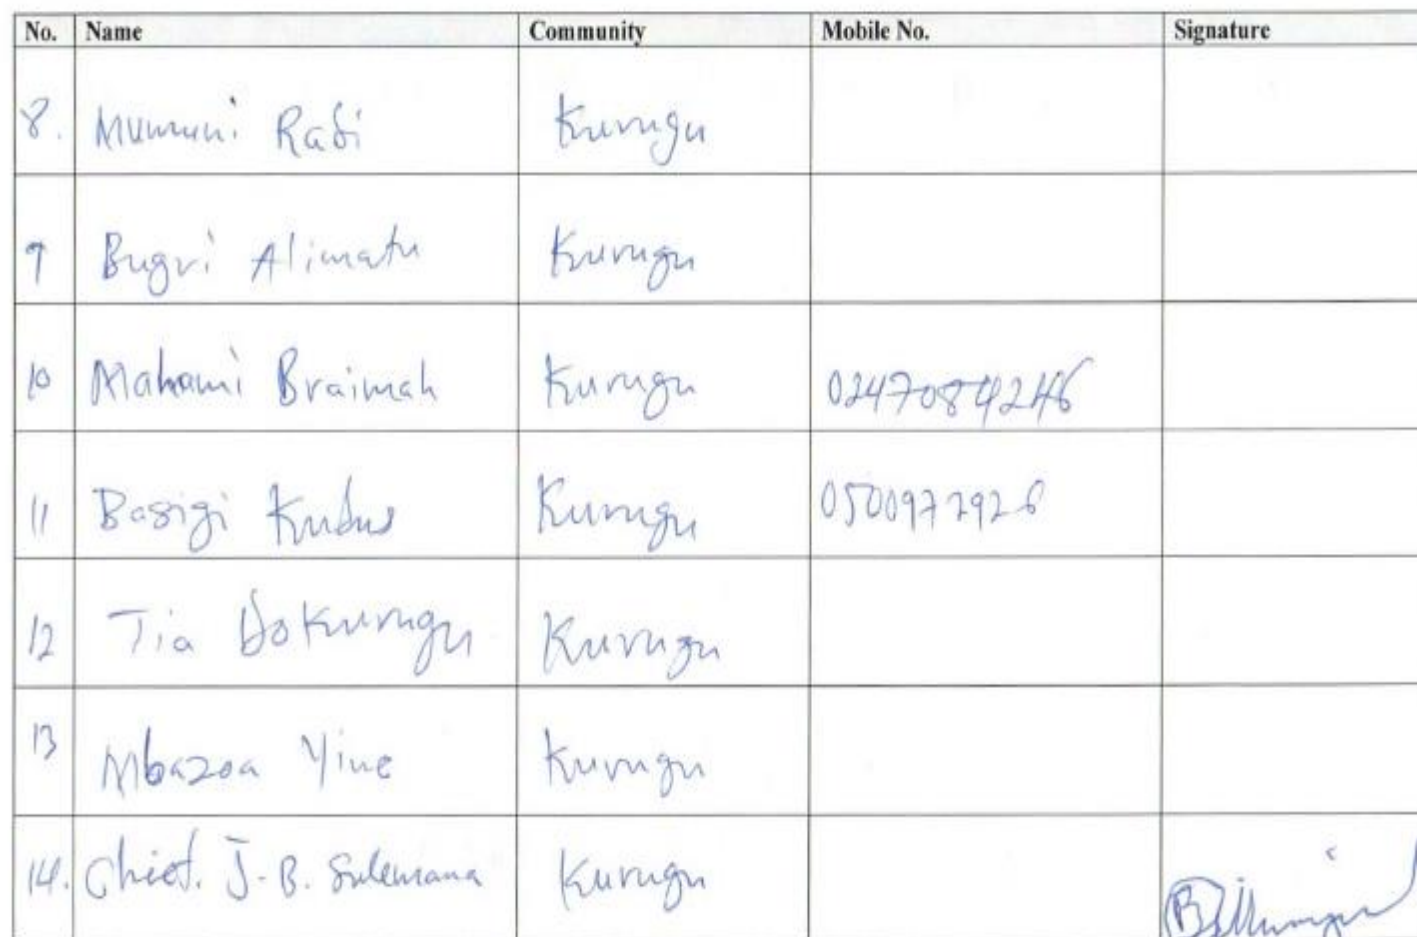 No. Name Community Mobile No. Signature
8. Mumuni Rafi Kurugu
9 Bugri Alimatu Kurugu
10 Mahami Braimah Kurugu
11 Basigi Kudus Kurugu
12 Tia Dokurugu Kurugu
13 Mbazoa Yine Kurugu
14. Chief. J.B. Sulemana Kurugu